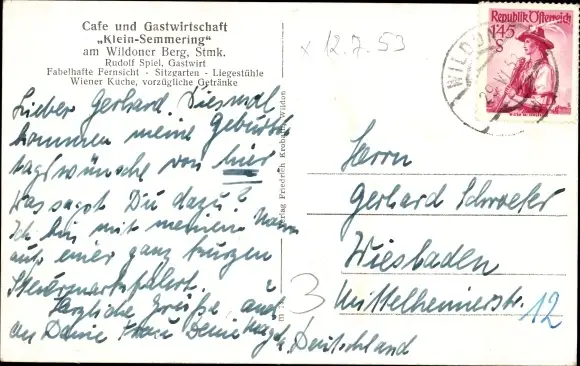 Cafe und Gastwirtschaft
„Klein-Semmering"
am Wildoner Berg, Stmk.
Rudolf Spiel, Gastwirt
Fabelhafte Fernsicht - Sitzgarten - Liegestühle
Wiener Küche, vorzügliche Getränke
x 12.7.53
Republik Österreich
1.45
S
WILDON
Lieber Gerhard. Diesmal
kommen meine Geburts
tagswünsche von hier
Was sagst Du dazu?
Ich bin mit meinem Mann
auf einer ganz kurzen
Steiermarkfahrt.
Herzliche Grüße, auch
an Deine Frau Deine
Verlag Friedrich Wildon
Herrn
Gerhard Schroeter
Wiesbaden
Mittelheimerstr. 12
Deutschland
3